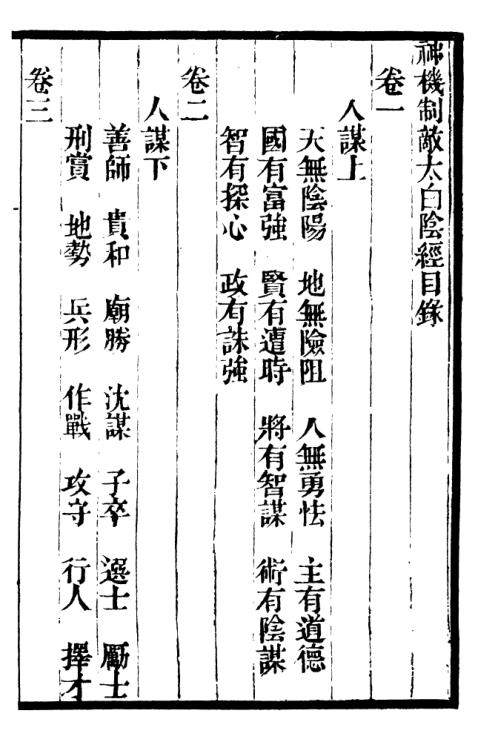 神機制敵太白陰經目錄
卷一
人謀上
天無陰陽 地無險阻 人無勇怯 主有道德
國有富強 賢有遭時 將有智謀 術有陰謀
智有探心 政有誅強
卷二
人謀下
善師 貴和 廟勝 沈謀 子卒 選士 勵士
刑賞 地勢 兵形 作戰 攻守 行人 擇才
卷三